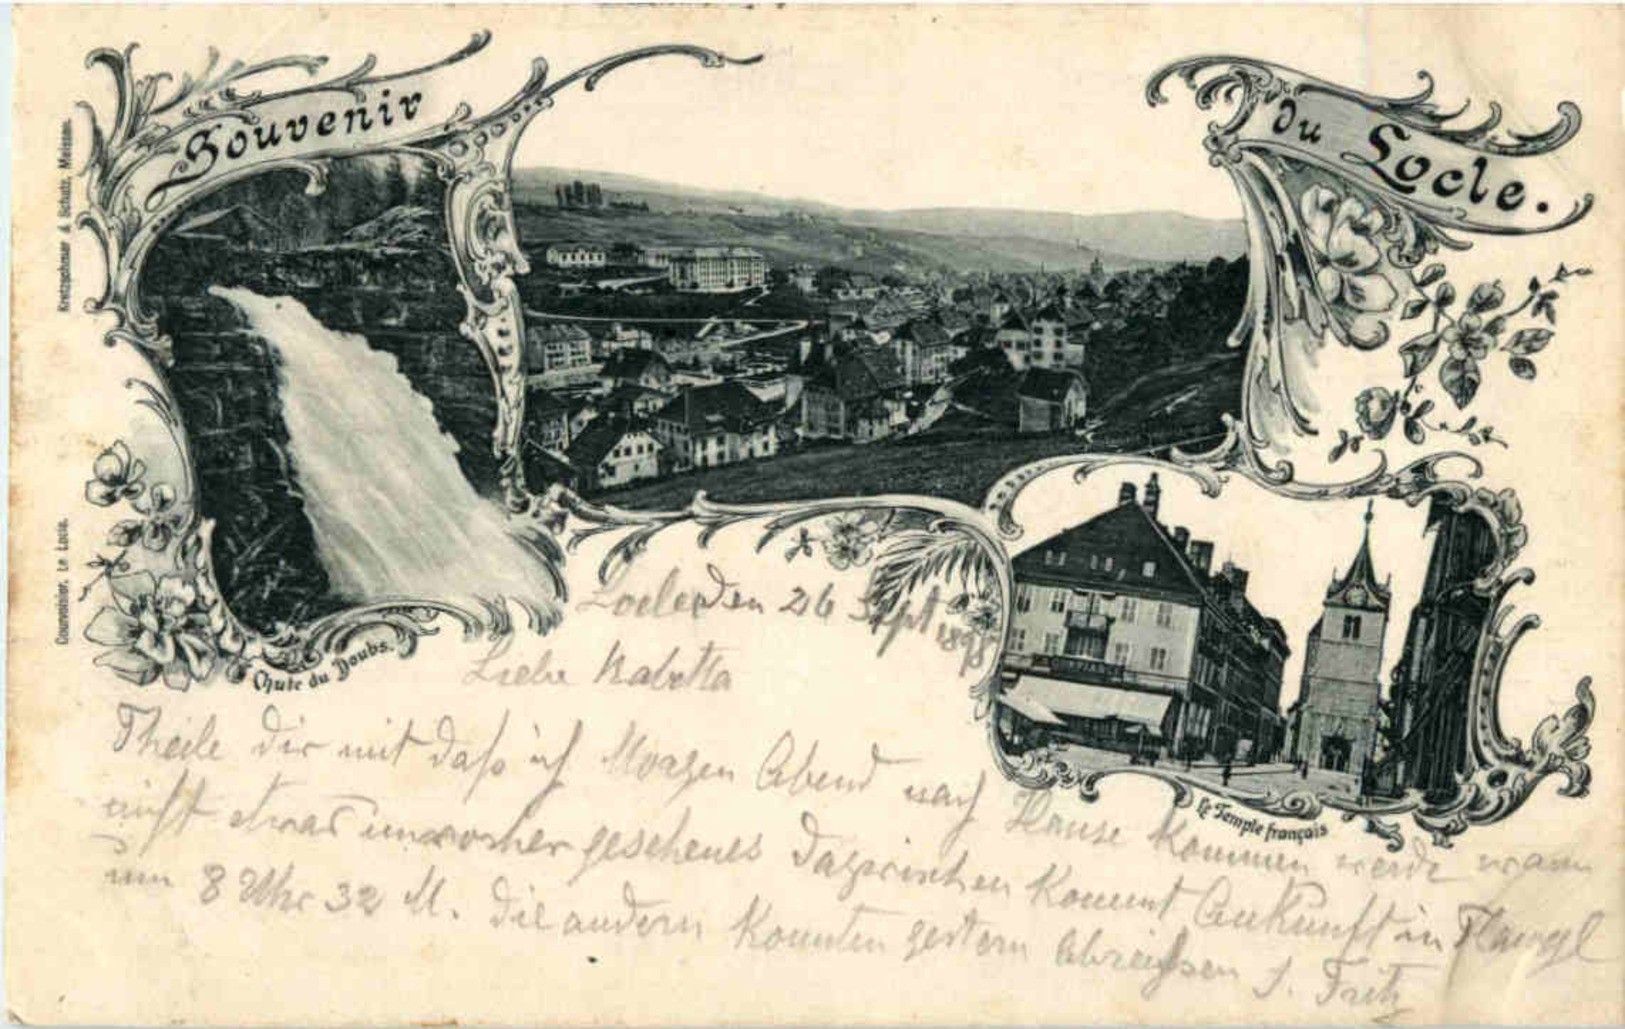 Souvenir
du Locle.
Kretzschmar & Schatz, Meissen.
Courvoisier, Le Locle.
Chute du Doubs.
Le Temple français
Locle den 26 Sept 1898
Liebe Babetta
Theile dir mit daß ich Morgen Abend nach Hause Kommen werde wann
nicht etwas unvorher gesehenes dazwischen Kommt Ankunft in Flawyl
um 8 Uhr 32 M. die andern Konnten gestern abreißen
Fritz